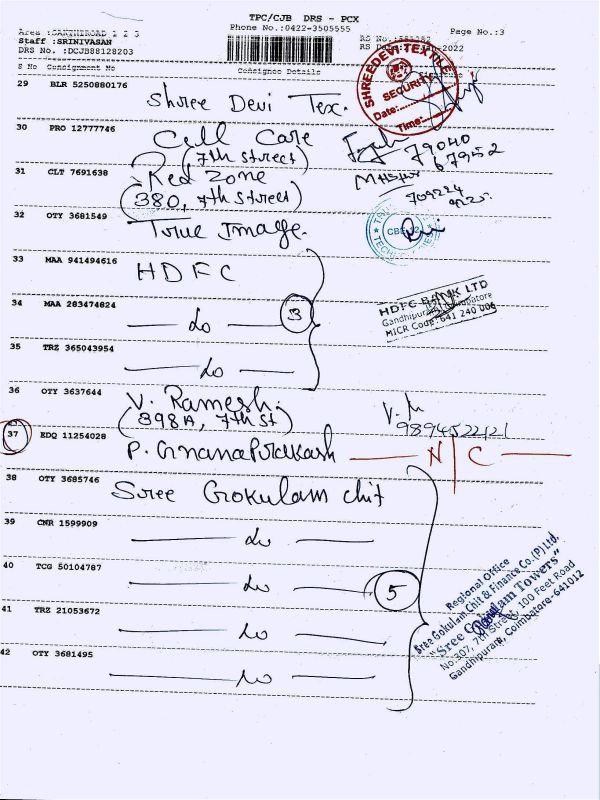 TPC/CJB DRS - PCX
Phone No.:0422-3505555
Page No.:3
Area :SANTHEROAD 1 2 3
Staff :SRINIVASAN
DRS No. :DCJB88128203
S No Consignment No Consignee Details
29 BLR 5250880176 Shree Devi Tex.
SHREEDEVI TEXTILE
SECURITY
Date:
Time:
30 PRO 12777746 Cell Care
(7th street)
79040
67952
31 CLT 7691638 Red Zone
(380, 7th Street)
709224
32 OTY 3681549 True Image.
33 MAA 941494616 HDFC
34 MAA 283474824 do
3
HDFC BANK LTD
Gandhipuram, Coimbatore
MICR Code: 641 240 006
35 TRZ 365043954 do
36 OTY 3637644 V. Ramesh.
(398A, 7th St)
9894522121
37 EDQ 11254028 P. GnanaPrakash N/C
38 OTY 3685746 Sree Gokulam chit
39 CNR 1599909 do
40 TCG 50104787 do
5
41 TRZ 21053672 do
42 OTY 3681495 do
Regional Office
Sree Gokulam Chit & Finance Co.(P) Ltd.
"Sree Gokulam Towers"
No:307, 7th Street, 100 Feet Road
Gandhipuram, Coimbatore-641012